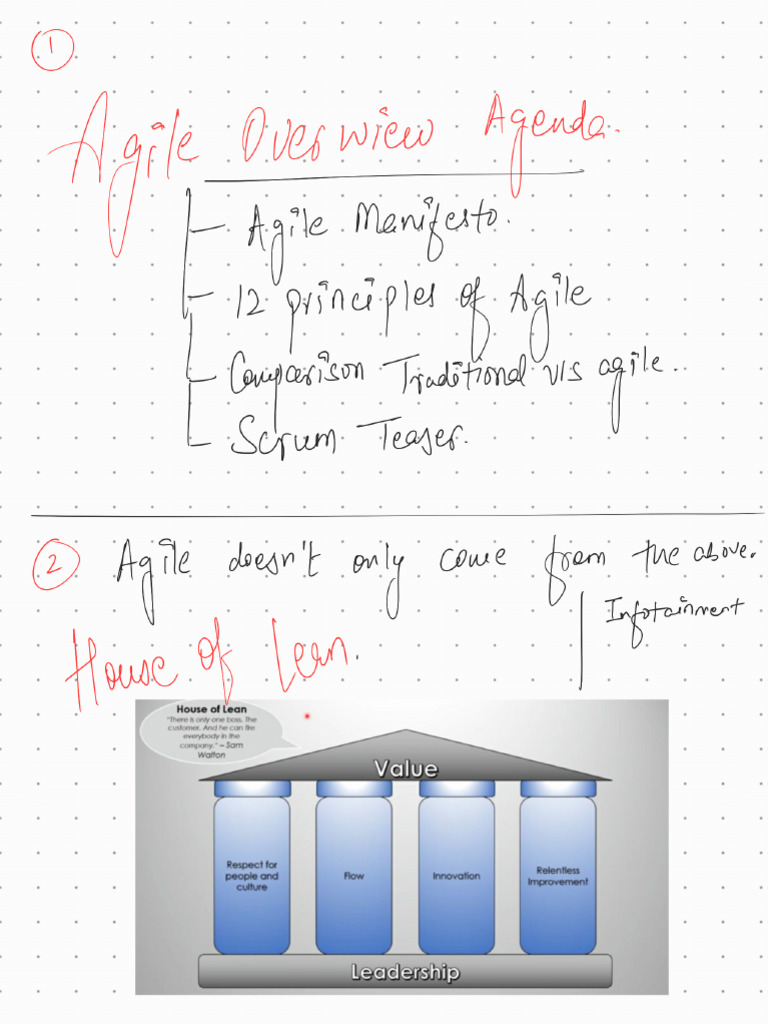 1
Agile Overview Agenda.
- Agile Manifesto.
- 12 principles of Agile
- Comparison Traditional v/s agile.
- Scrum Teaser.
2 Agile doesn't only come from the above.
Infotainment
House of Lean.
House of Lean
"There is only one boss. The
customer. And he can fire
everybody in the
company." – Sam
Walton
Value
Respect for
people and
culture
Flow
Innovation
Relentless
Improvement
Leadership